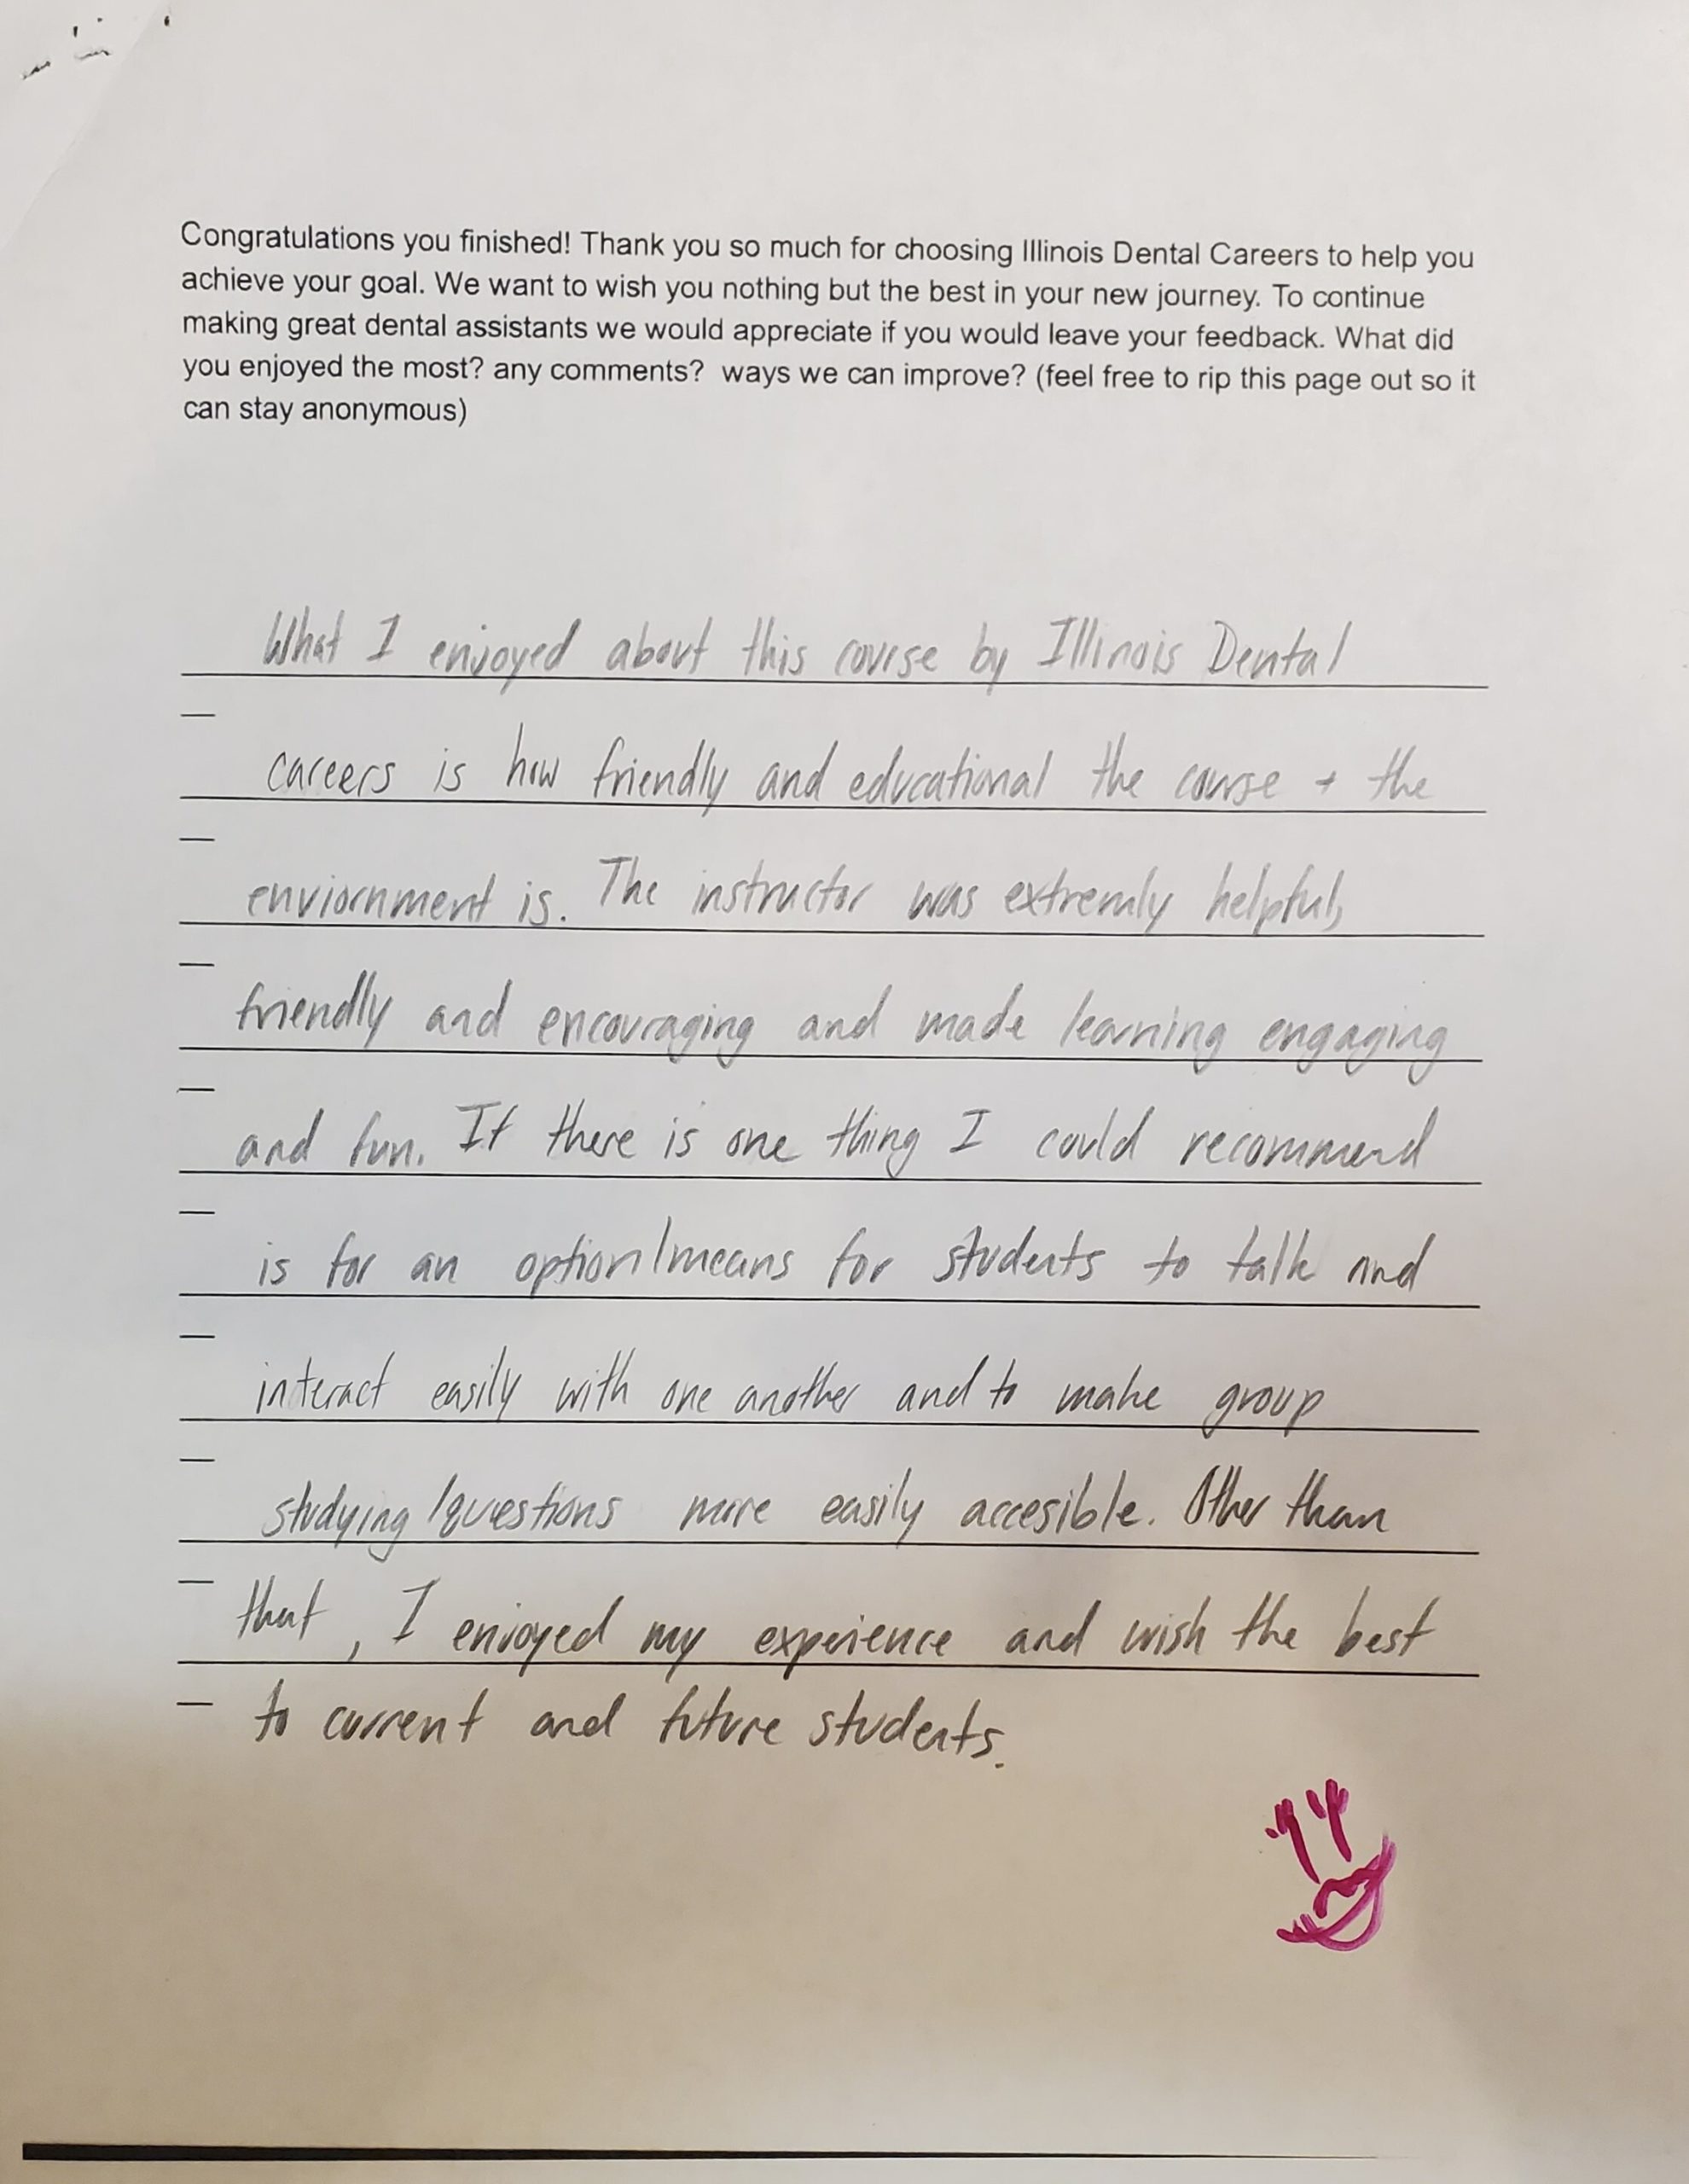 Congratulations you finished! Thank you so much for choosing Illinois Dental Careers to help you
achieve your goal. We want to wish you nothing but the best in your new journey. To continue
making great dental assistants we would appreciate if you would leave your feedback. What did
you enjoyed the most? any comments? ways we can improve? (feel free to rip this page out so it
can stay anonymous)
What I enjoyed about this course by Illinois Dental
careers is how friendly and educational the course + the
enviornment is. The instructor was extremly helpful,
friendly and encouraging and made learning engaging
and fun. If there is one thing I could recommend
is for an option/means for students to talk and
interact easily with one another and to make group
studying/questions more easily accesible. Other than
that, I enjoyed my experience and wish the best
to current and future students.